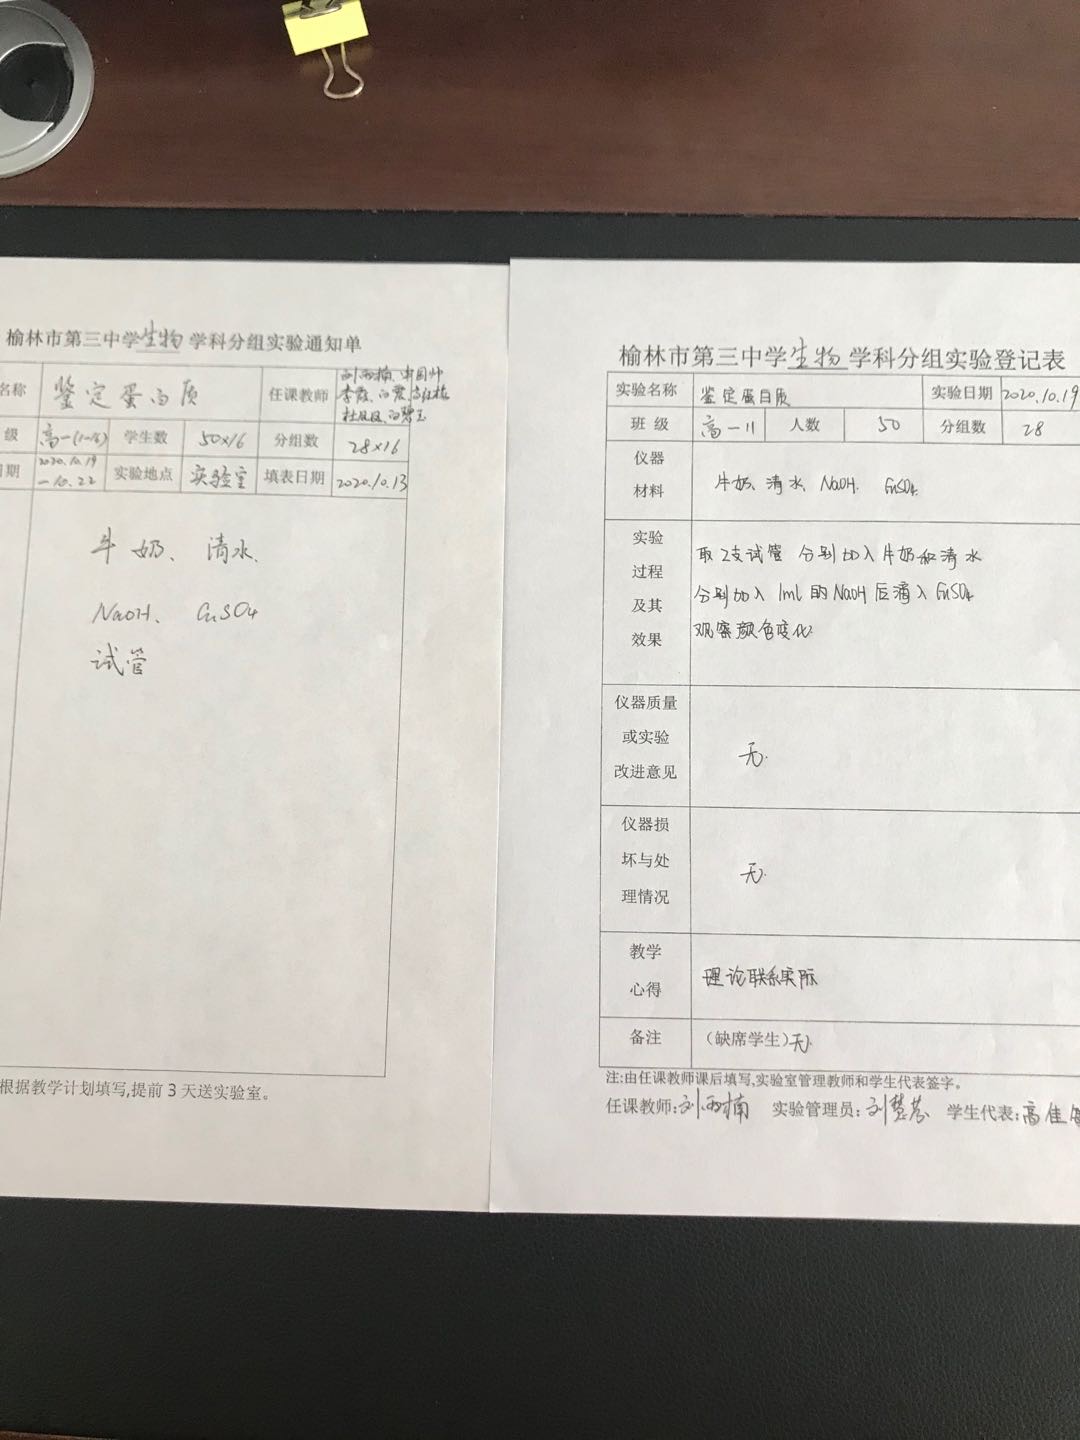 榆林市第三中学生物学科分组实验通知单
名称 鉴定蛋白质 任课教师
李霞、白霞、
级 高一(1-16) 学生数 50×16 分组数 28×16
期 2020.10.19-10.22 实验地点 实验室 填表日期 2020.10.13
牛奶、清水、
NaOH、CuSO4
试管
根据教学计划填写,提前3天送实验室。
榆林市第三中学生物学科分组实验登记表
实验名称 鉴定蛋白质 实验日期 2020.10.19
班级 高一11 人数 50 分组数 28
仪器
材料
牛奶、清水、NaOH. CuSO4.
实验
过程
及其
效果
取2支试管 分别加入牛奶和清水
分别加入 1ml 的NaOH后滴入 CuSO4
观察颜色变化.
仪器质量
或实验
改进意见
无.
仪器损
坏与处
理情况
无.
教学
心得
理论联系实际
备注 (缺席学生)无.
注:由任课教师课后填写,实验室管理教师和学生代表签字。
任课教师:刘雨楠 实验管理员:刘慧芬 学生代表:高佳